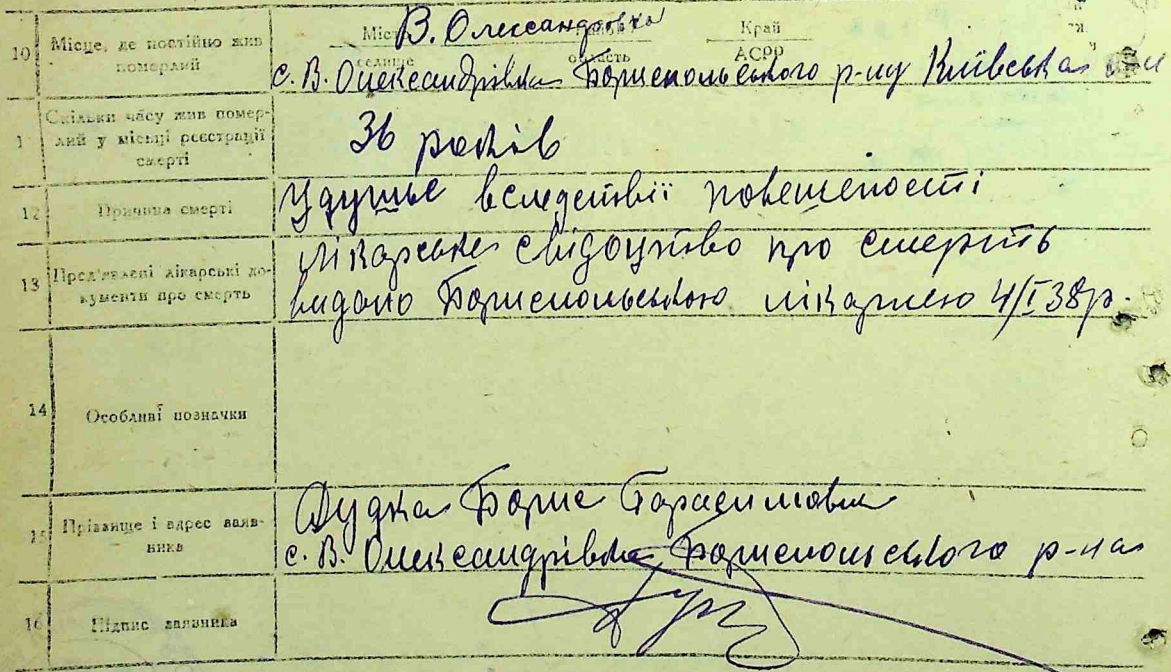 10 Місце, де постійно жив померлий
Місто В. Олександровка Край
селище область АСРР
с. В. Олександрівка Бориспольського р-ну Київська
Скільки часу жив померлий у місці реєстрації смерті
36 років
12 Причина смерті
Удушье вследствії повешеності
13 Пред'явлені лікарські документи про смерть
Лікарське свідоцтво про смерть
видано Бориспольською лікарнею 4/I 38р.
14 Особливі позначки
15 Прізвище і адрес заявника
Дудка Борис Гарасимович
с. В. Олександрівка Бориспольського р-на
16 Підпис заявника